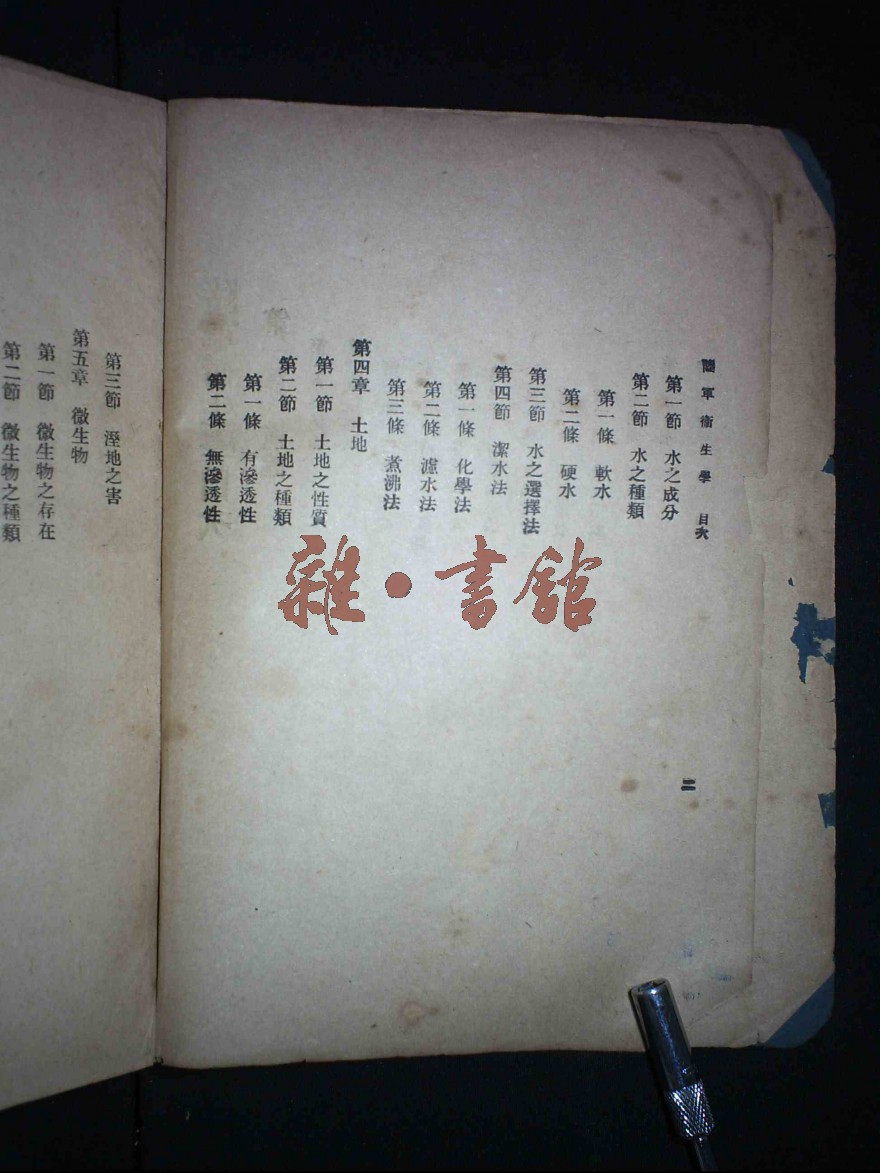 陸軍衞生學 目次
第一節 水之成分
第二節 水之種類
第一條 軟水
第二條 硬水
第三節 水之選擇法
第四節 潔水法
第一條 化學法
第二條 濾水法
第三條 煮沸法
第四章 土地
第一節 土地之性質
第二節 土地之種類
第一條 有滲透性
第二條 無滲透性
二
第三節 溼地之害
第五章 微生物
第一節 微生物之存在
第二節 微生物之種類
雜·書館